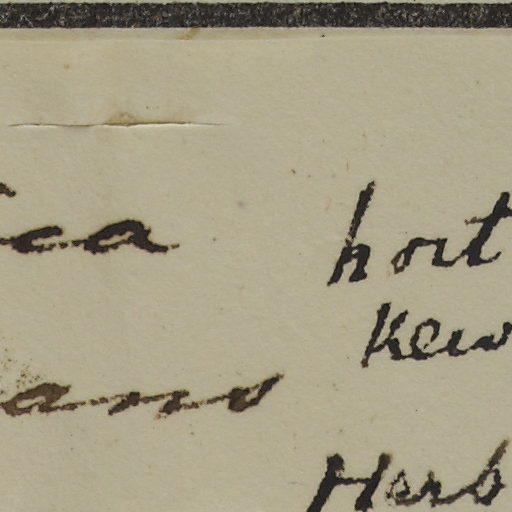 ica hort
Kew
ans
Herb